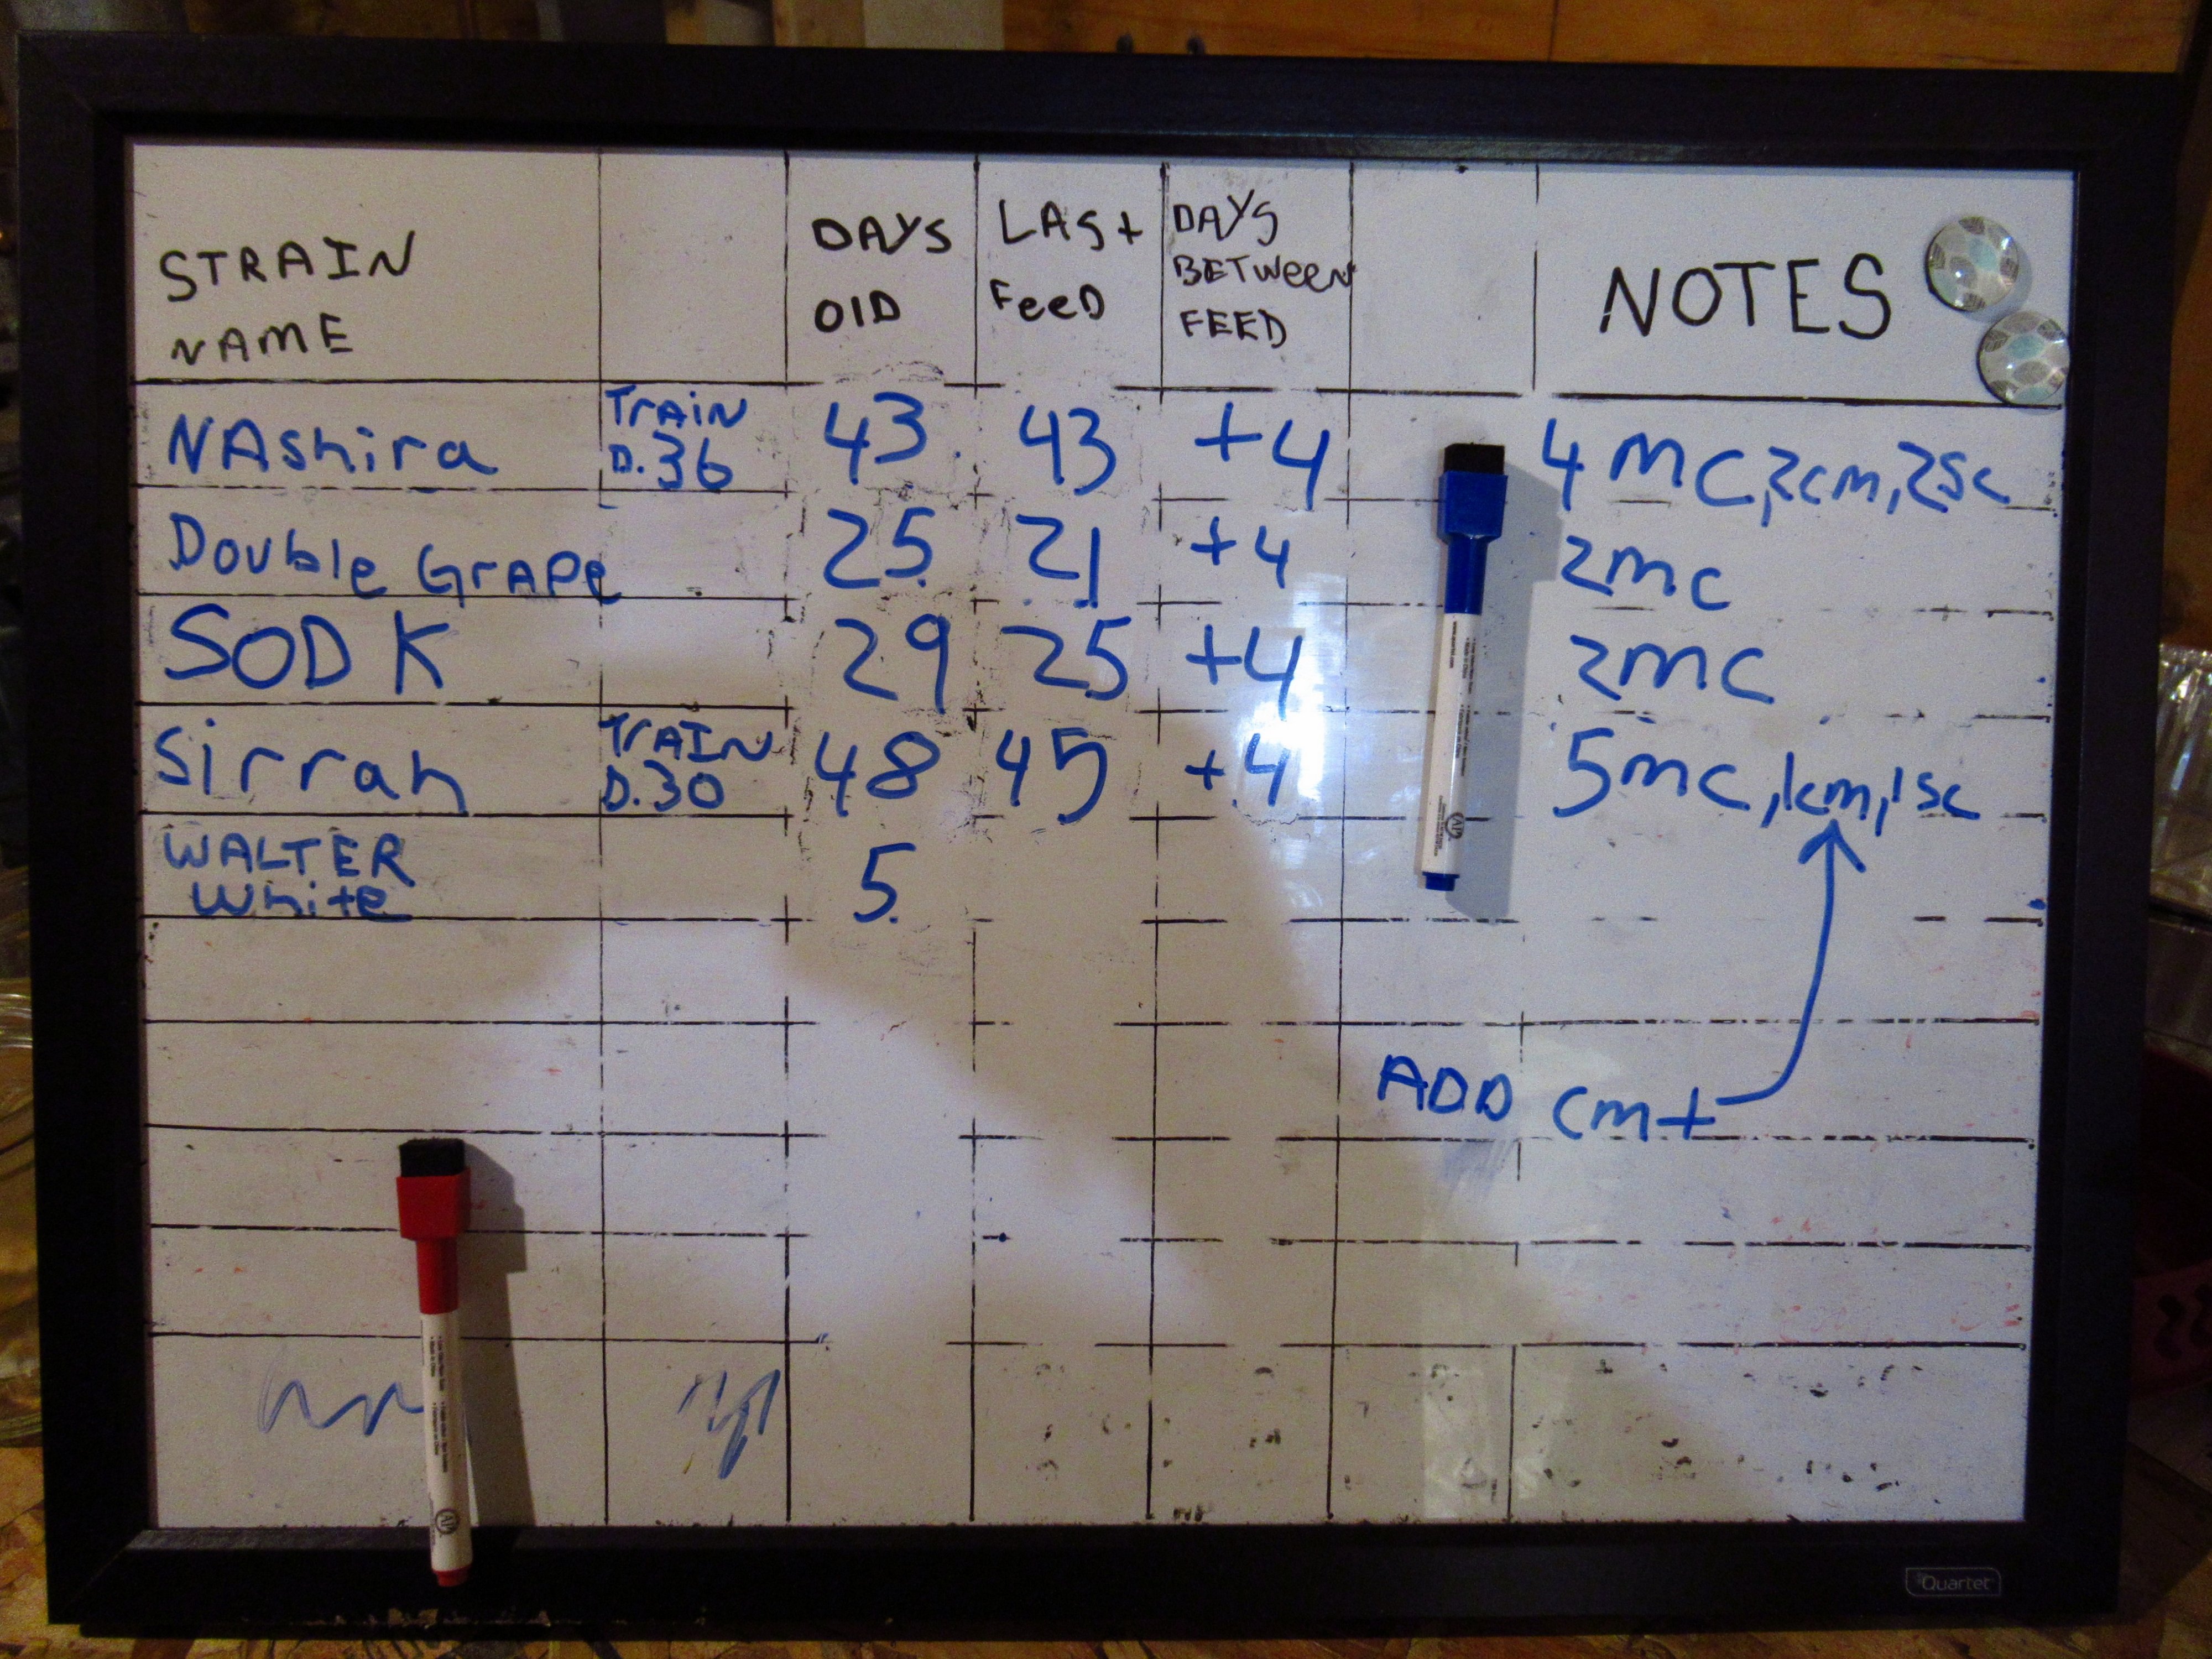 STRAIN NAME
DAYS OlD
LAST FeeD
DAYS BETWeeN FEED
NOTES
NAshira TrAiN D.36 43. 43 +4 4mc,2cm,2sc
Double GrAPe 25. 21 +4 2mc
SOD K 29 25 +4 2mc
Sirrah TrAIN D.30 48 45 +4 5mc, 1cm, 1sc
WALTER White 5.
ADD cm+
Quartet